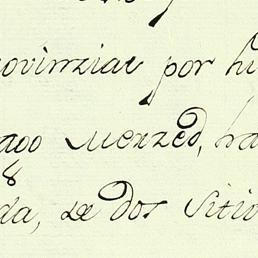 ovinziae por hi
ado Merzed, ha
da, de dos Sitio